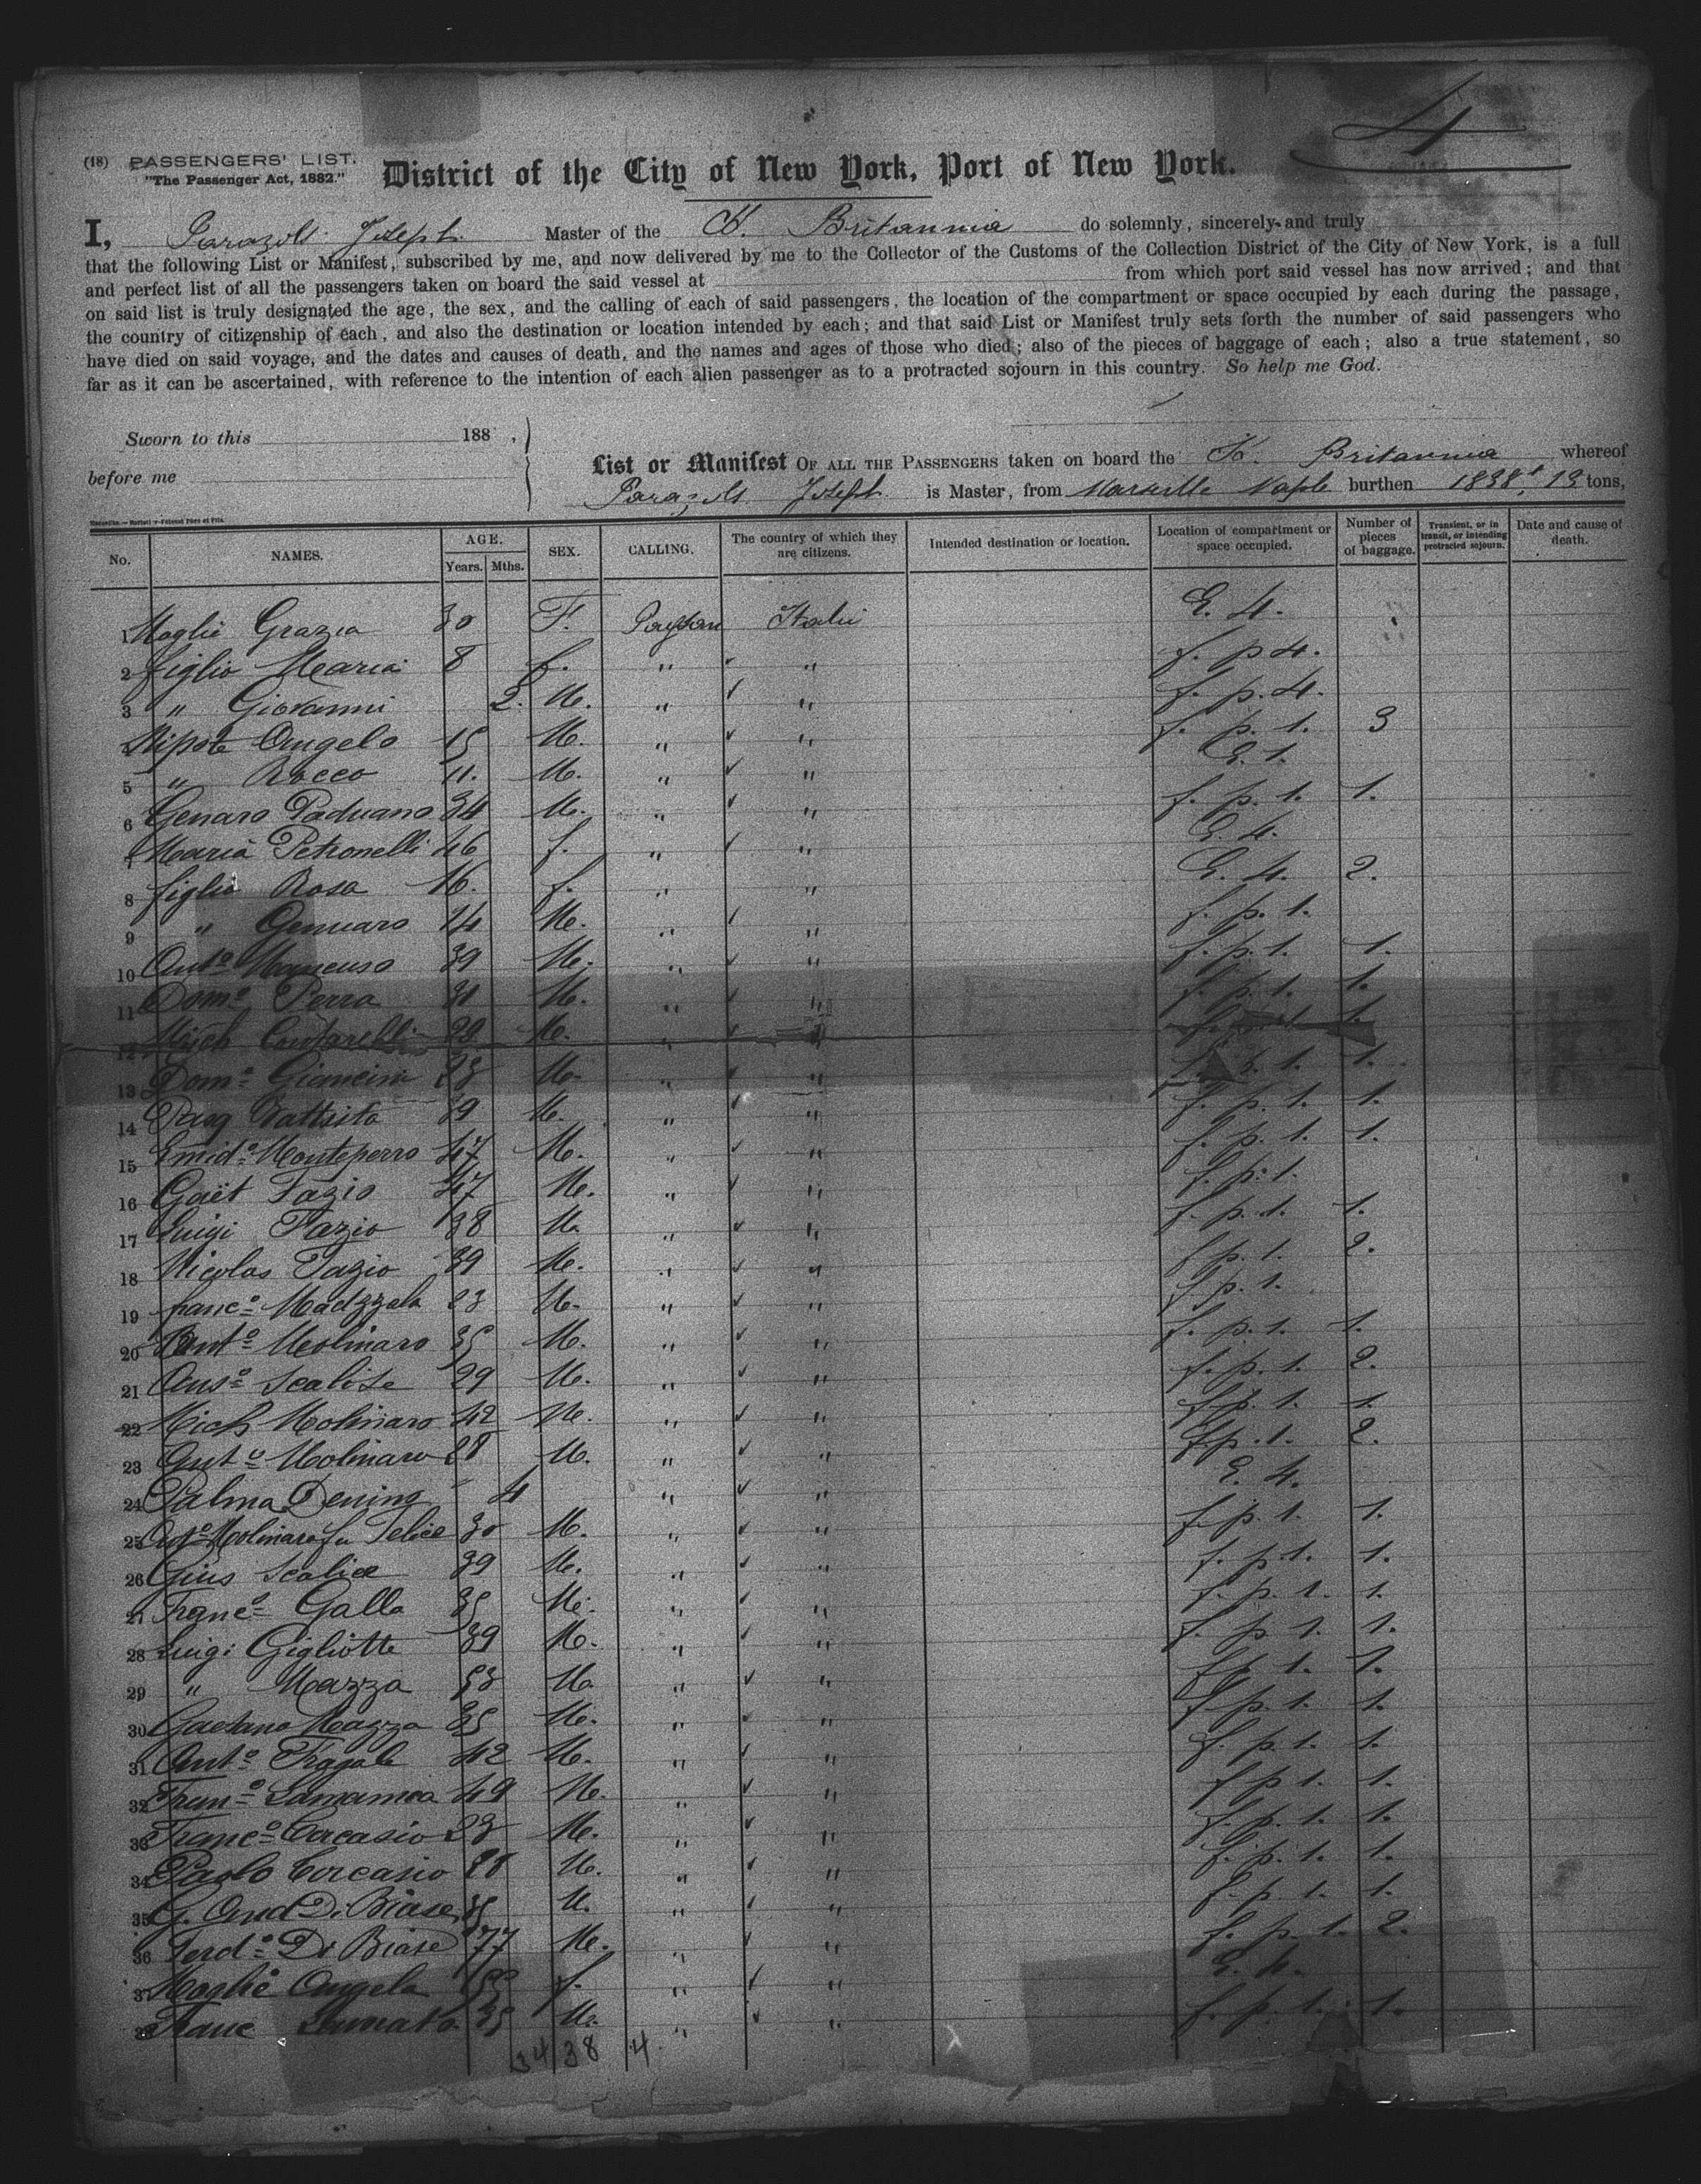 4
(18) PASSENGERS' LIST.
"The Passenger Act, 1882."
District of the City of New York, Port of New York.
I, Joseph Master of the Britannia do solemnly, sincerely and truly
that the following List or Manifest, subscribed by me, and now delivered by me to the Collector of the Customs of the Collection District of the City of New York, is a full
and perfect list of all the passengers taken on board the said vessel at from which port said vessel has now arrived; and that
on said list is truly designated the age, the sex, and the calling of each of said passengers, the location of the compartment or space occupied by each during the passage,
the country of citizenship of each, and also the destination or location intended by each; and that said List or Manifest truly sets forth the number of said passengers who
have died on said voyage, and the dates and causes of death, and the names and ages of those who died; also of the pieces of baggage of each; also a true statement, so
far as it can be ascertained, with reference to the intention of each alien passenger as to a protracted sojourn in this country. So help me God.
Sworn to this 188 ,
before me
List or Manifest OF ALL THE PASSENGERS taken on board the Britannia whereof
Joseph is Master, from Marseille Naple burthen 1838 t, 13 tons,
No. NAMES. AGE. Years. Mths. SEX. CALLING. The country of which they are citizens. Intended destination or location. Location of compartment or space occupied. Number of pieces of baggage. Transient, or in transit, or intending protracted sojourn. Date and cause of death.
1 Moglie Grazia 30 F. Paysan Italie E. 4.
2 figlio Maria 8 f. " " f. p 4.
3 " Giovanni 2. M. " " f. p. 4.
4 Nipote Angelo 15 M. " " f. p. 1. 3
5 " Rocco 11. M. " " E. 1.
6 Genaro Paduano 34 M. " " f. p. 1. 1.
7 Maria Petronelli 46 f. " " E. 4.
8 figlia Rosa 16. f. " " E. 4. 2.
9 " Gennaro 14 M. " " f. p. 1.
10 Anto Mancuso 39 M. " " f. p. 1. 1.
11 Domo Perra 31 M. " " f. p. 1. 1.
12 Mich M. " " 1.
13 Domo M. " " 1. 1.
14 M. " " f. p. 1. 1.
15 Emido Monteperro 47 M. " " f. p. 1. 1.
16 Gaët Fazio 47 M. " " f. p. 1.
17 Luigi Fazio 38 M. " " f. p. 1. 1.
18 Nicolas Fazio 39 M. " " f. p. 1. 2.
19 franco 23 M. " " f. p. 1.
20 Anto Molinaro 35 M. " " f. p. 1. 1.
21 Scalise 29 M. " " f. p. 1. 2.
22 Mich Molinaro 42 M. " " f. p. 1. 1.
23 Anto Molinaro 28 M. " " f. p. 1. 2.
24 Palma 4 " " E. 4.
25 Anto Molinaro fu Felice 30 M. " " f. p. 1. 1.
26 Gius Scalise 39 M. " " f. p. 1. 1.
27 Franco Gallo 35 M. " " f. p. 1. 1.
28 Luigi Gigliotte 39 M. " " f. p. 1. 1.
29 " Mazza 53 M. " " f. p. 1. 1.
30 Gaetano Mazza 35 M. " " f. p. 1. 1.
31 Anto Fragale 42 M. " " f. p. 1. 1.
32 49 M. " " f. p 1. 1.
33 Franco M. " " f. p. 1. 1.
34 Paolo 28 M. " " f. p. 1. 1.
35 G. And Di Biase 35 M. " " f. p. 1. 1.
36 Ferdo Di Biase M. " " f. p. 1. 2.
37 Moglie Angela f. " " E. 4.
38 Franc 35 M. " " f. p. 1. 1.
34 38 4